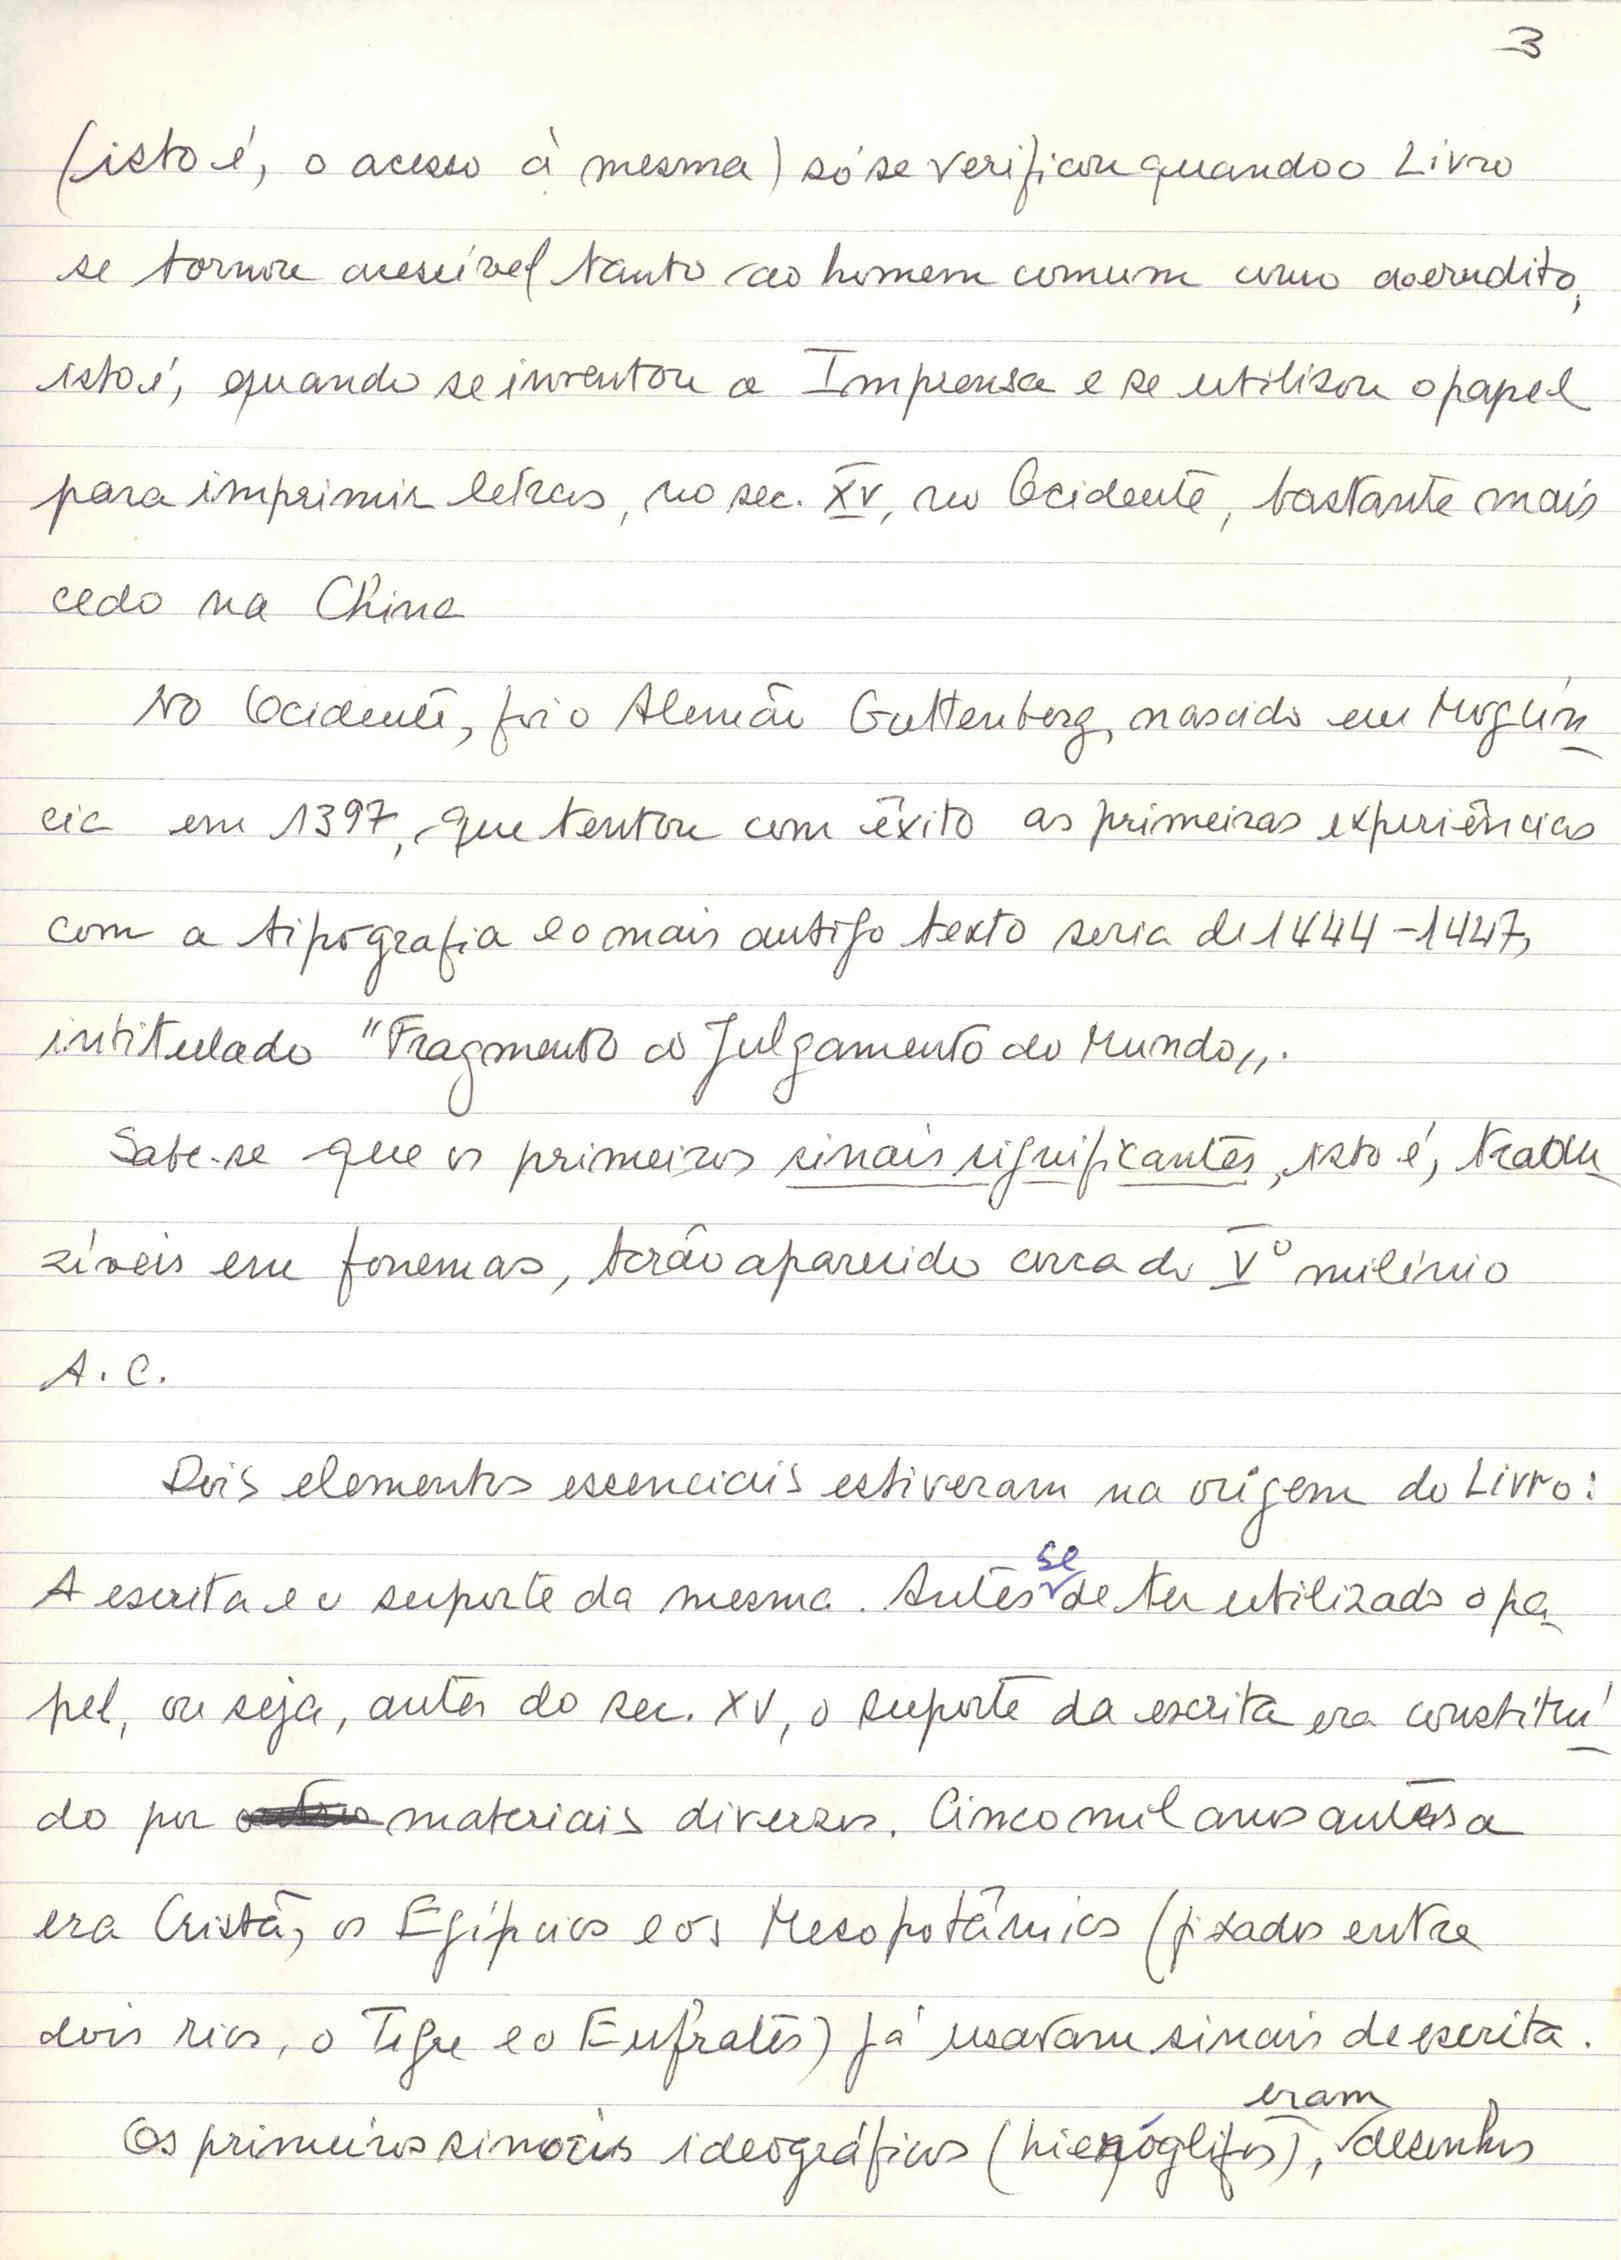 3
(isto é, o acesso à mesma) só se verificou quando o Livro
se tornou acessível tanto ao homem comum como ao erudito,
isto é, quando se inventou a Imprensa e se utilisou o papel
para imprimir letras, no sec. XV, no Ocidente, bastante mais
cedo na China
No Ocidente, foi o Alemão Guttenberg, nascido em Mogún
cia em 1397, que tentou com êxito as primeiras experiências
com a tipografia e o mais antigo texto seria de 1444-1447,
intitulado "Fragmento do Julgamento do Mundo".
Sabe-se que os primeiros sinais significantes, isto é, tradu
zíveis em fonemas, terão aparecido cerca do Vº milénio
A.C.
Dois elementos essenciais estiveram na origem do Livro:
A escrita e o suporte da mesma. Antes se de ter utilizado o pa
pel, ou seja, antes do sec. XV, o suporte da escrita era constituí
do por materiais diversos. Cinco mil anos antes a
era Cristã, os Egípcios e os Mesopotâmios (fixados entre
dois rios, o Tigre e o Eufrates) já usavam sinais de escrita.
Os primeiros sinais ideográficos (hieróglifos), eram desenhos